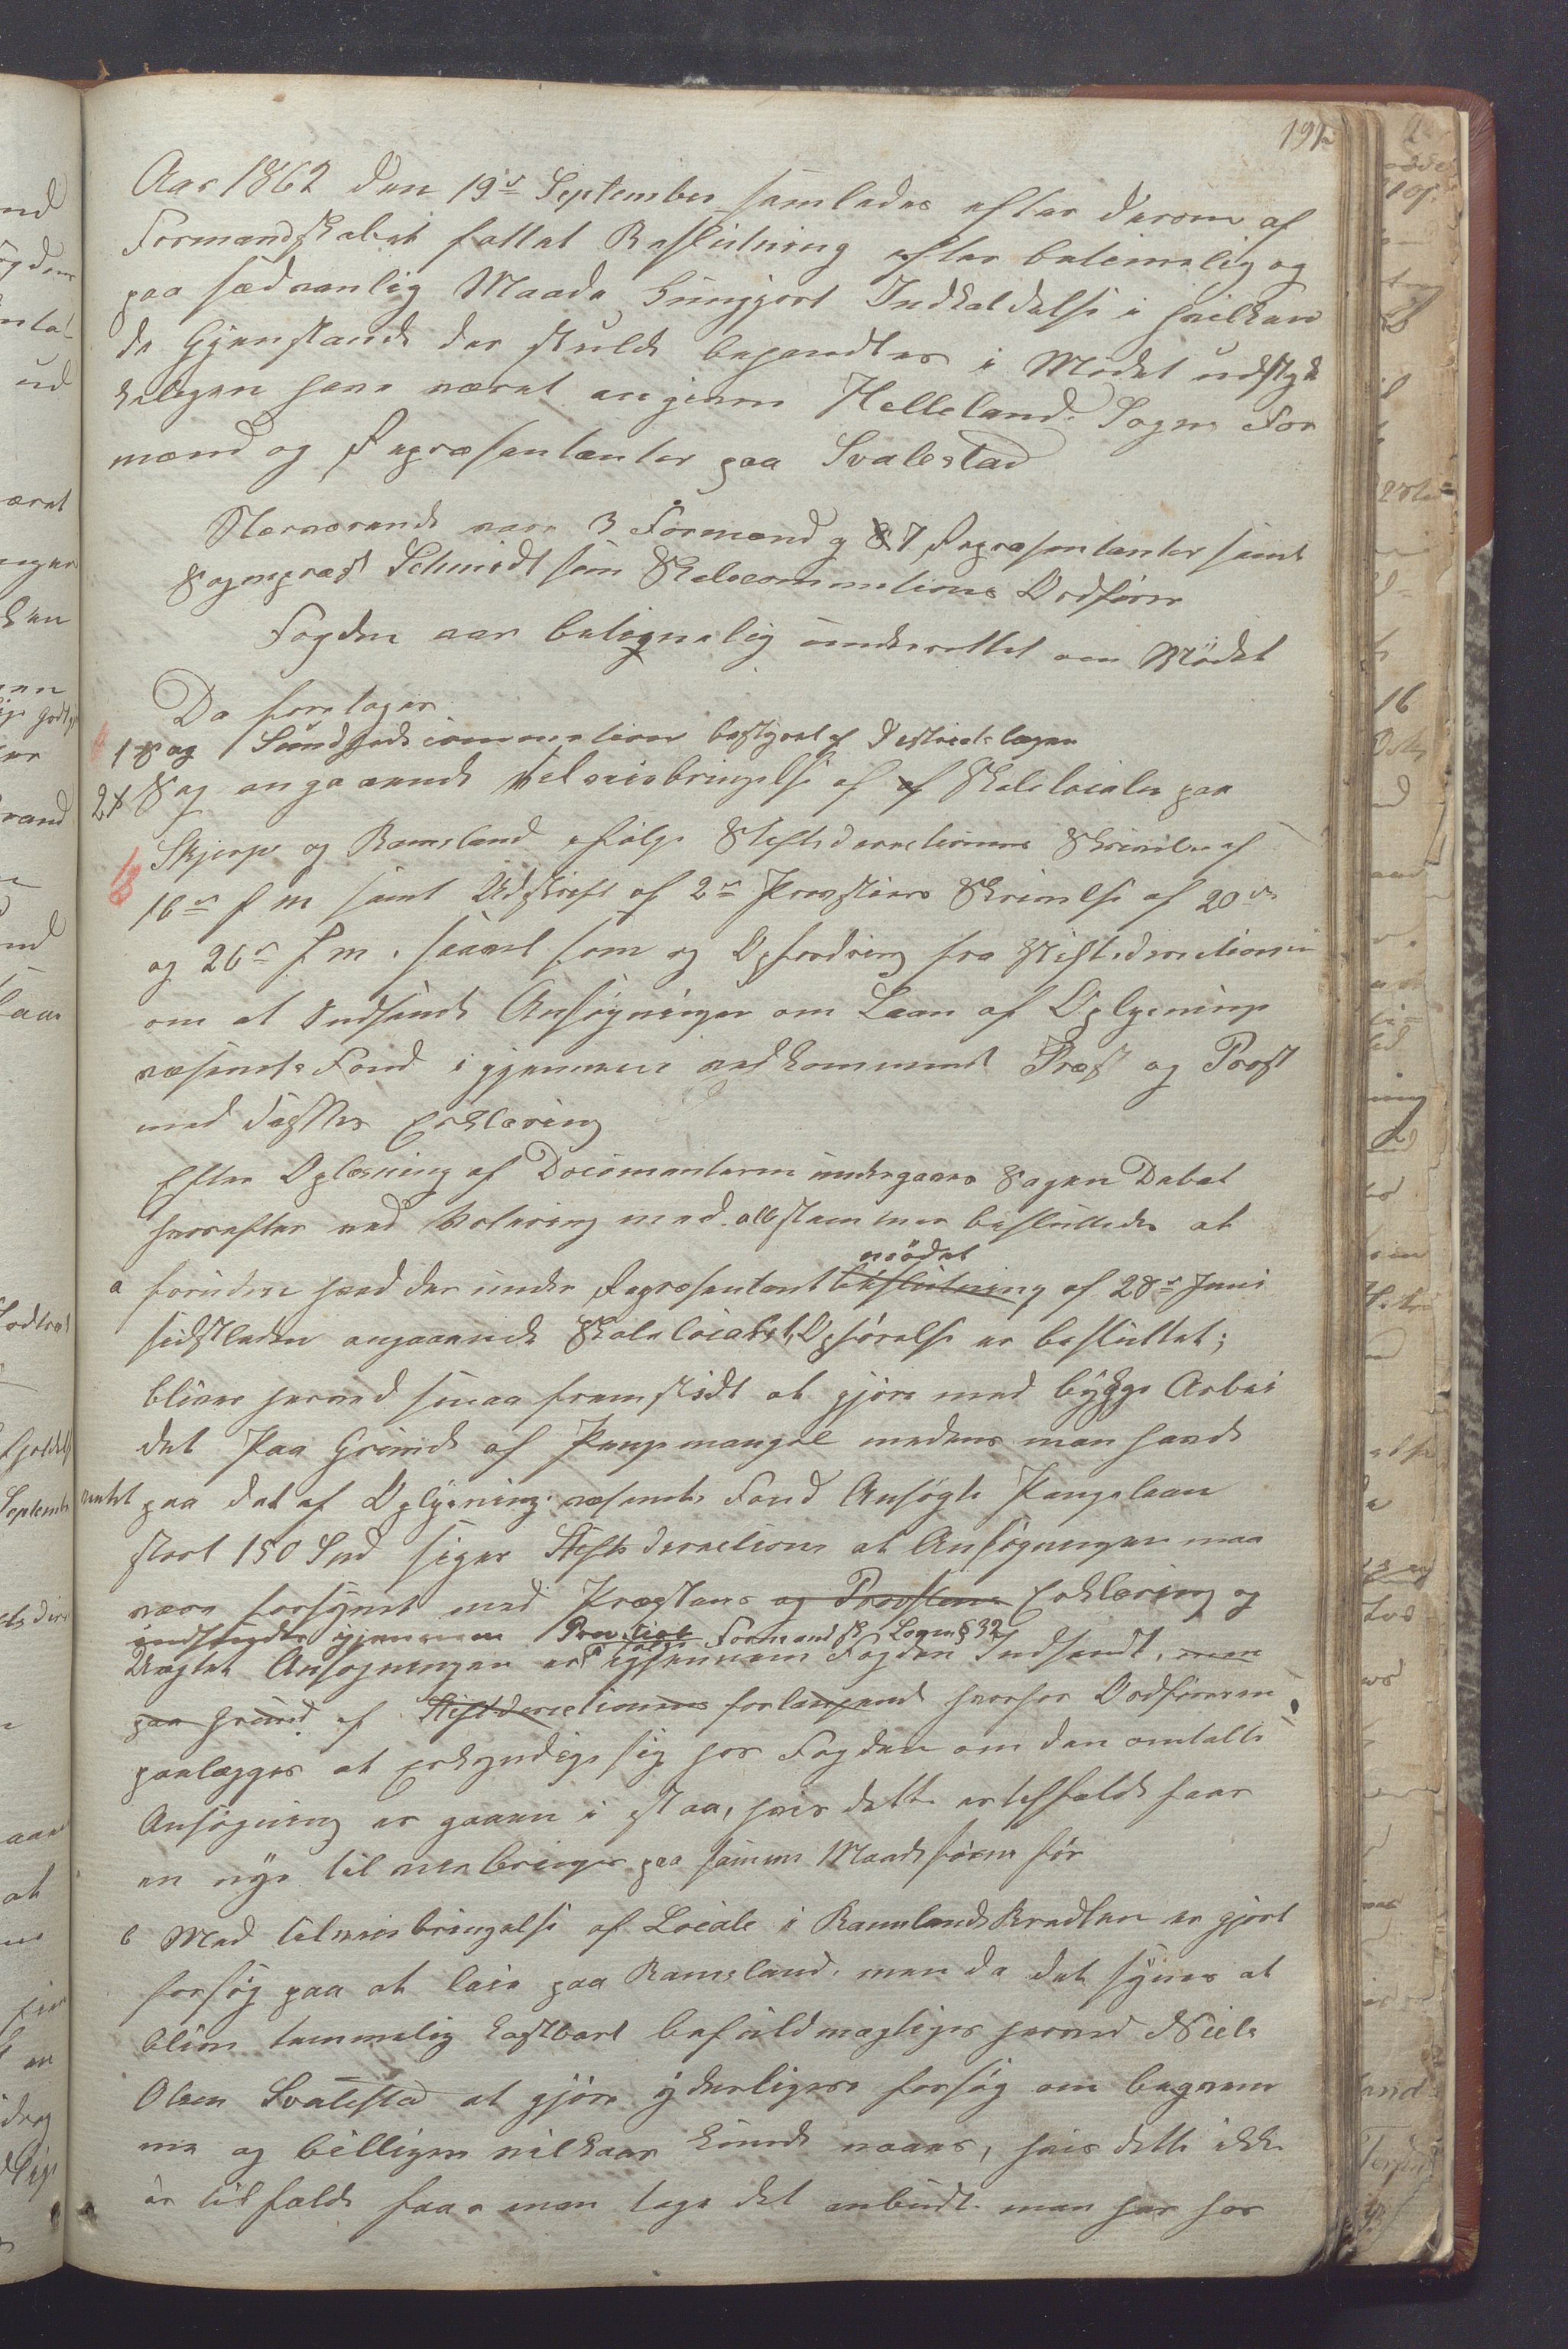 191a
Aar 1862 den 19de September samledes efter derom af
Formandskabet fattet Beslutning efter betimelig og
paa sædvanlig Maade kungjort Indkaldelse i hvilken
de Gjenstande der skulde behandles i Mødet udtryk
keligen have været angivne Hellelands Sogns For
mænd og Repræsentanter paa Svalestad
Nærværende vare 3 Formænd og 7 Repræsentanter samt
Sognepræst Schmidt som Skolecommitions Ordfører
Fogden var betimelig underrettet om Mødet
Da foretoges
1 Sag Sundhedscommetion bestyret af Districtslægen
2 Sag angaaende tilveiebringelse af af Skolelocaler paa
Skjerpe og Ramsland ifølge Stiftsdirectionens Skrivelse af
16de f m samt Udskrift af 2de Provstiers Skrivelse af 20de
og 26de f m. saavel som og Opfordring fra Stiftsdirectionen
om at Indsende Ansøgninger om Laan af Oplysnings
væsenets Fond igjennem vedkommende Præst og Provst
med disses Erklæring
Efter Oplæsning af Documenterne undergaaes Sagen Debat
hvorefter ved Votering med alle stemmer besluttedes at
mødet
a foruden hvad der under Repræsentant beslutning af 28de Juni
sidstleden angaaende Skolelocalets Opførelse er besluttet;
bliver herved smaa fremskridt at gjøre med bygge Arbei
det Paa Grund af Penge mangel medens man havde
ventet paa det af Oplysningsvæsenets Fond Ansøgte Pengelaan
stort 150 Spd siger Stiftsdirectionen at Ansøgningen maa
være forsynet med Præstens og Provstens Erklæring og
indsendes igjennem Provstiet Formandsk. Logens § 32
Uagtet Ansøgningen er igjennem Fogden Indsendt, men
paa Grund af Stiftdirectionens forlangende hvorfor Ordføreren
paalægges at erkyndige sig hos Fogden om den omtalte
Ansøgning er gaaen i staa, hvis dette er tilfælde faar
en nye tilveiebringes paa samme Maade som før
b Med tilveiebringelse af Locale i Ramslands Kredsen er gjort
forsøg paa at leie paa Ramsland, men da det synes at
blive temmelig kostbart befuldmægtiges herved Niels
Olsen Svalestad at gjøre yderligere forsøg om beqvem
me og billigere vilkaar kunde naaes, hvis dette ikke
er tilfælde faar man tage det anbudt man har hos